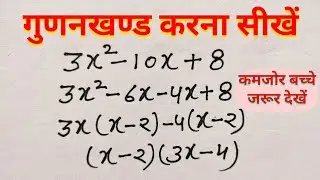 गुणनखण्ड करना सीखें
3x²-10x+8
3x²-6x-4x+8
3x(x-2)-4(x-2)
(x-2)(3x-4)
कमजोर बच्चे
जरूर देखें